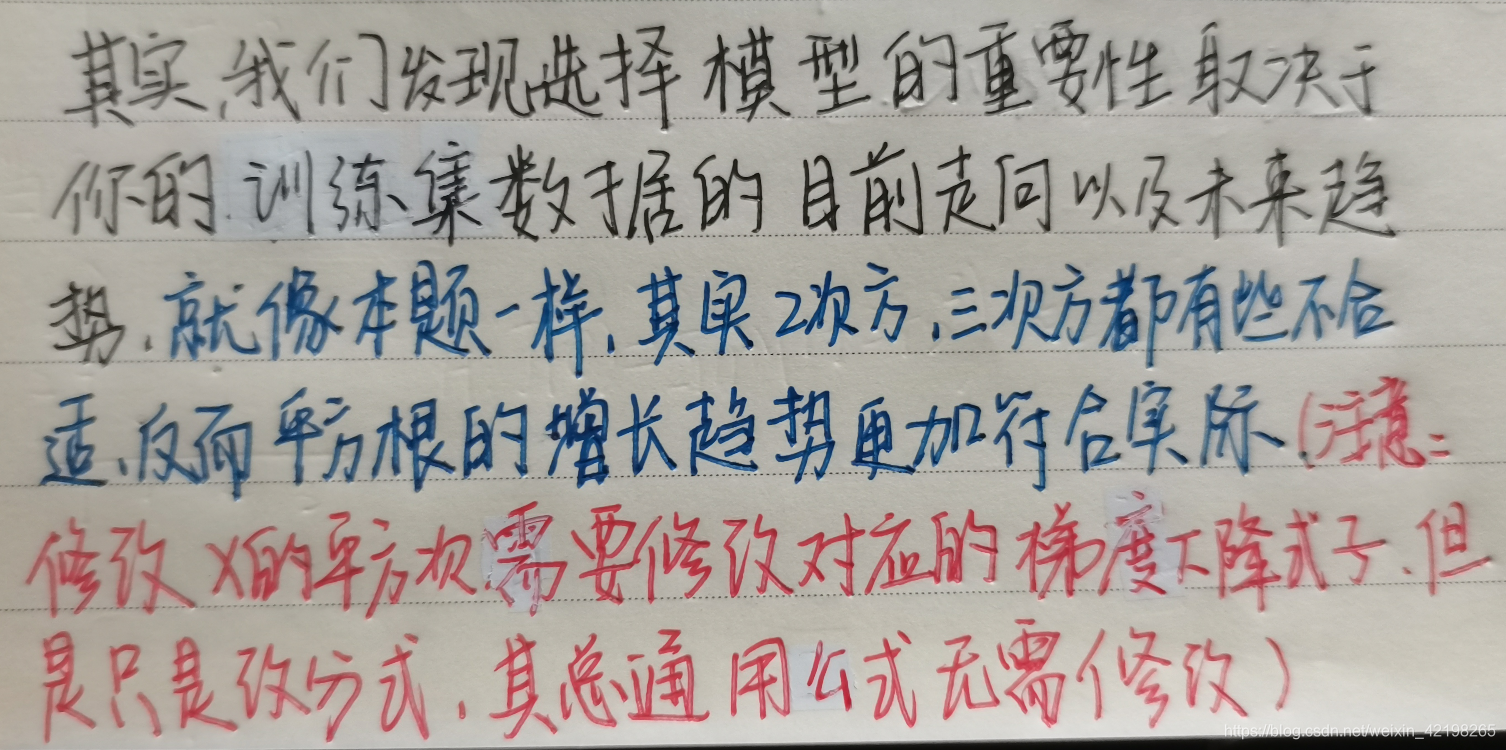 其实,我们发现选择模型的重要性取决于
你的训练集数据的目前走向以及未来趋
势.就像本题一样,其实2次方,三次方都有些不合
适,反而平方根的增长趋势更加符合实际(注意:
修改X的平方次需要修改对应的梯度下降式子.但
是只是改分式,其总通用公式无需修改)
https://blog.csdn.net/weixin_42198265